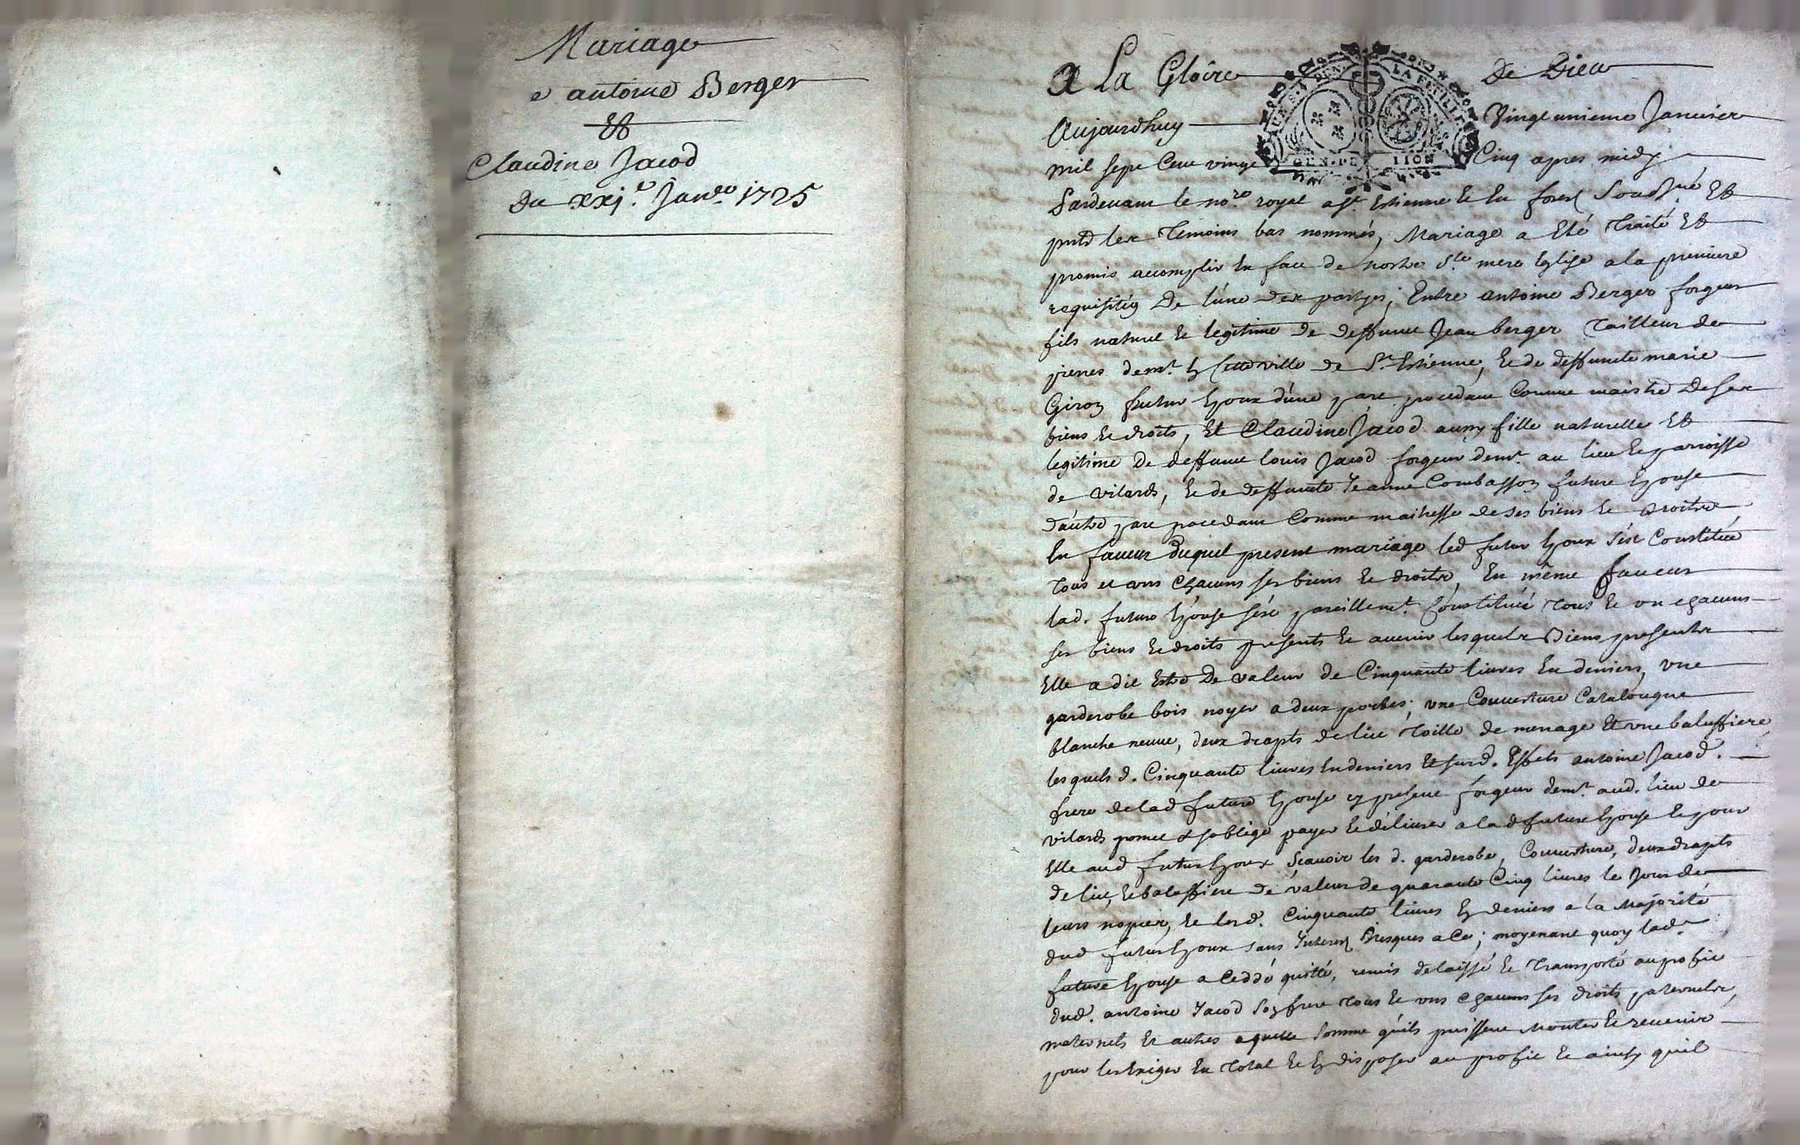 Mariage
e antoine Berger
Et
Claudine Jacod
Du xxj.e Janv.o 1725
A La Gloire De Dieu
Aujourdhuy Vingt unieme Janvier
mil sept Cent vingt Cinq apres midy
Pardevant le no.re royal a St Estienne En forest Soussné Et
pnts les Temoins bas nommés, Mariage a Eté Traité Et
promis accomplir En face de nostre Ste mere Eglise a la premiere
requisitioy De l'une des partyes; Entre antoine Berger forgeur
fils naturel et legitime de deffunt Jean berger Tailleur de
pieres demt. Ey cette ville de St Estienne, Et de deffuncte marie
Giroy futur Epoux d'une part procedant Comme maistre De ses
biens Et droits, Et Claudine Jacod aussy fille naturelle Et
legitime De deffunct louis Jacod forgeur demt. au lieu Et parroisse
de vilards, Et de deffuncte Jeanne Combassoy future Epouse
d'autre part procedant Comme maitresse de ses biens Et droits
En faveur duquel present mariage led futur Epoux s'est Constitué
Tous et uns Chacuns ses biens Et droits, En même faveur
lad. future Epouse s'est pareillemt. Constitué Tous Et un chacuns
ses biens Et droits presents Et avenir lesquels Biens presents
Elle a dit Estre De valeur de Cinquante livres En deniers, une
garderobe bois noyer a deux portes, une Couverture Catalougne
blanche neuve, deux drapts de lict Toille de menage Et une balassiere
lesquels d. Cinquante livres En deniers Et surd. Effets antoine Jacod.
frere de lad future Epouse cy present forgeur demt. aud. lieu de
vilards promet & s'oblige payer Et délivrer a lad future Epouse Et pour
Elle aud futur Epoux Scavoir les d. garderobe, Couverture, deux drapts
de lict, Et balassiere de valeur de quarante Cinq livres le Jour de
leurs nopces, Et lesd. Cinquante livres Ey deniers a la Majorité
dud futur Epoux sans Interest Jusques a Ce; moyenant quoy lad.
future Epouse a Ceddé quitté, remis delaissé Et Transporté au profit
dud. antoine Jacod Soy frere Tous Et uns chacuns ses droits paternels,
maternels Et autres a quelle Somme qu'ils puissent Monter Et revenir
pour les Exiger En Total Et Ey disposer au profit Et ainsy quil